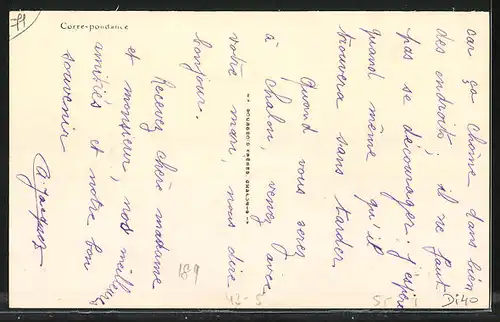 71
Correspondance
car ça chôme dans bien
des endroits ; il ne faut
pas se décourager. J'espère
quand même qu'il
trouvera sans tarder.
Quand vous serez
à Chalon, venez avec
votre mari, nous dire
bonjour.
Recevez chère madame
et monsieur, nos meilleures
amitiés et notre bon
souvenir
A. Jacques
BOURGEOIS FRÈRES, CHALON-S-S
189
42-3
Di40